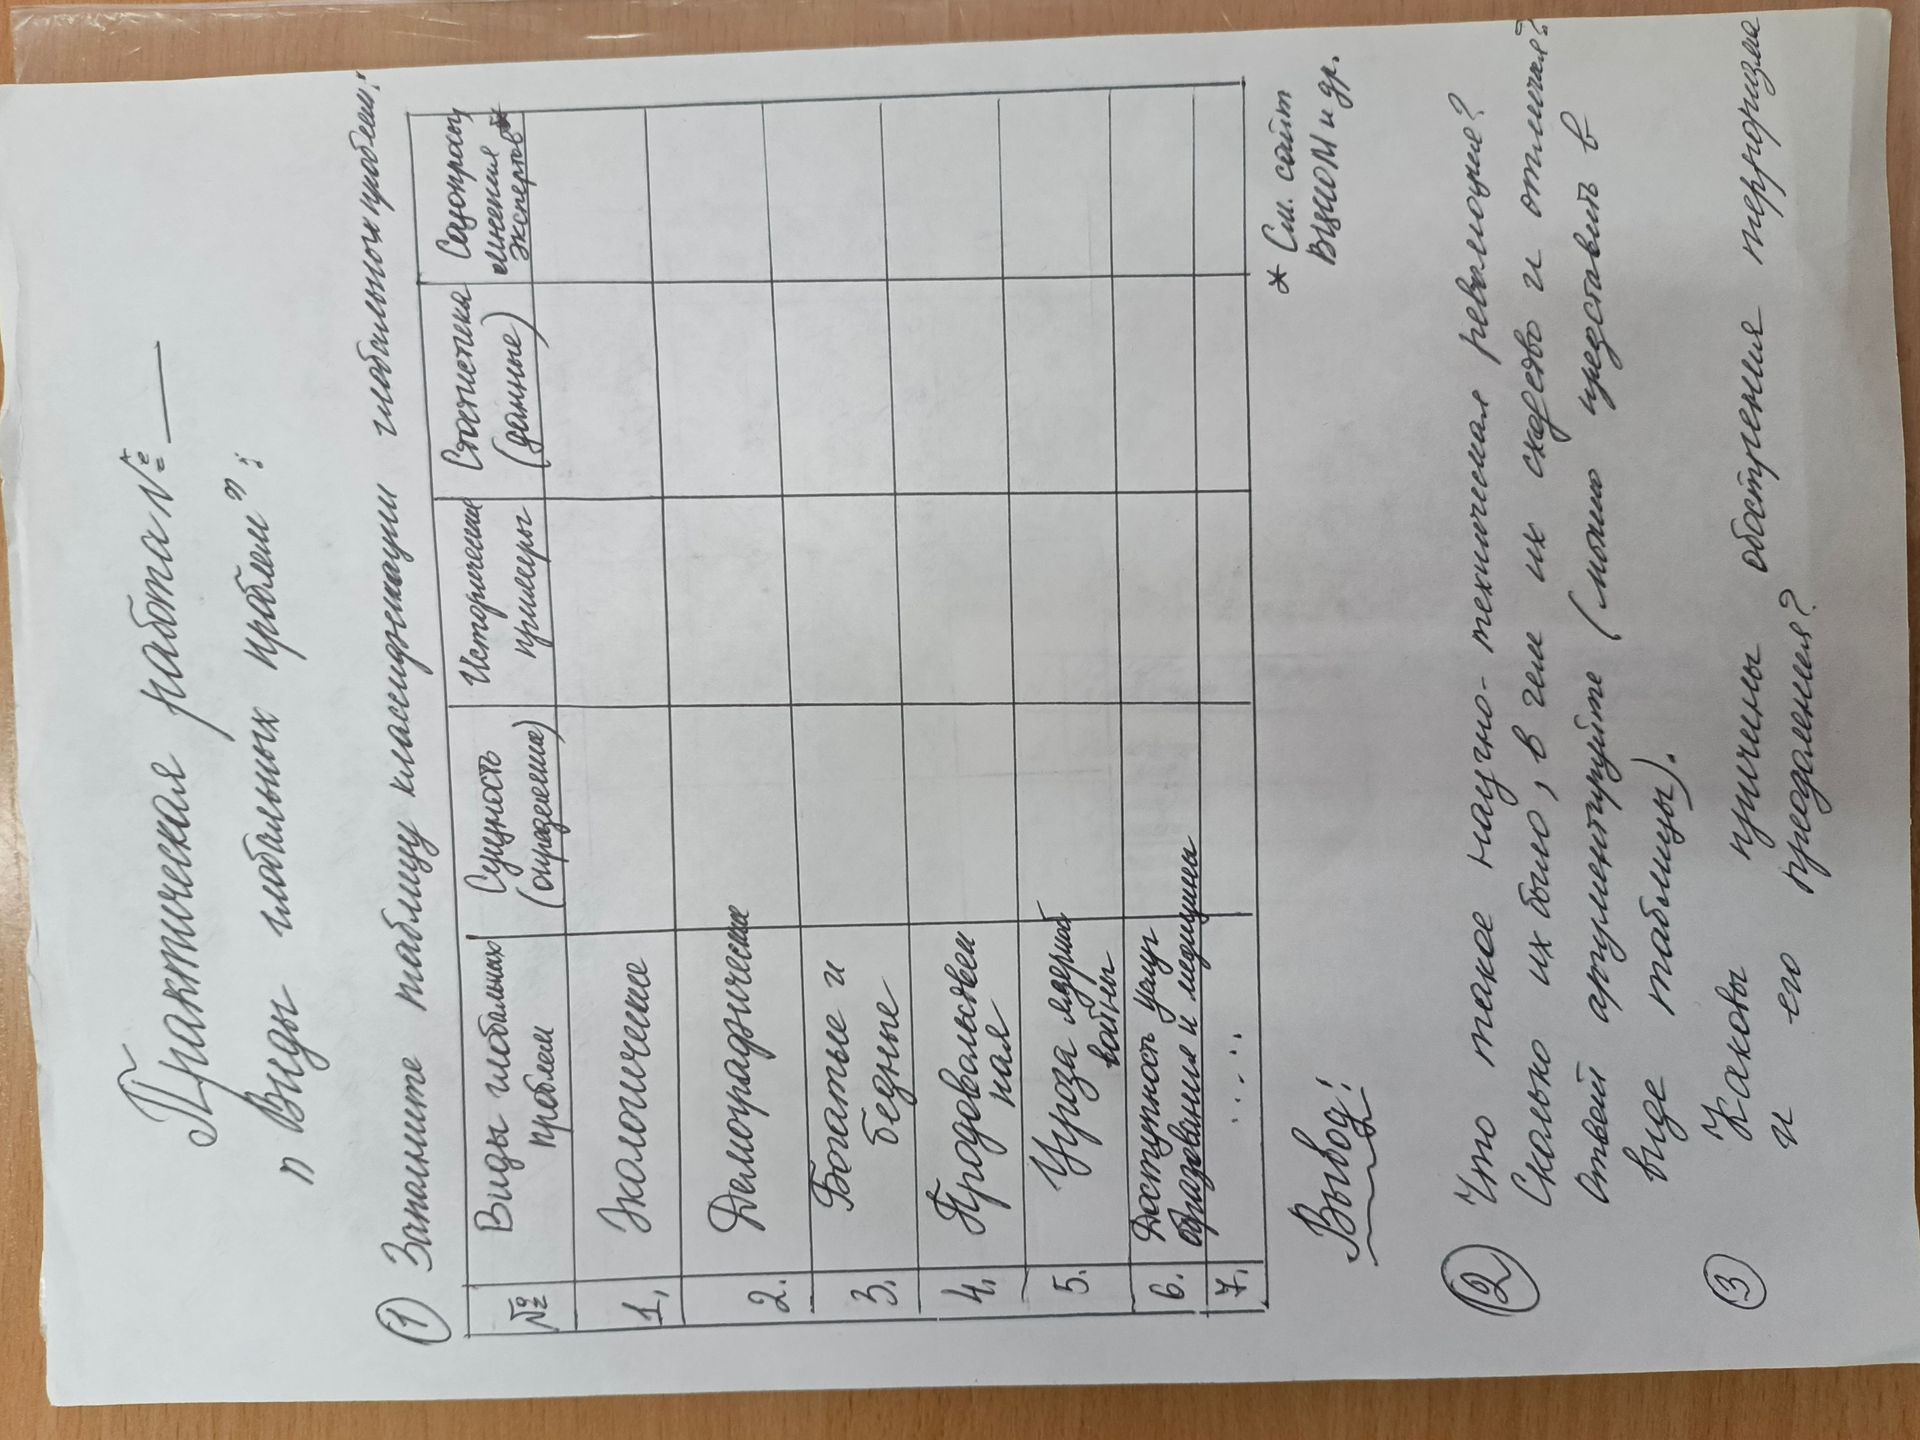 Практическая работа №
"Виды глобальных проблем":
① Заполните таблицу классификации глобальных проблем:
№ Виды глобальных проблем Сущность (определение) Исторические примеры Статистика (данные) Соцопросы, мнения экспертов *
1. Экологические
2. Демографические
3. Богатые и бедные
4. Продовольствен ная
5. Угроза ядерной войны
6. Доступность услуг образования и медицины
7. .....
* См. сайт
ВЦИОМ и др.
Вывод:
② Что такое научно-техническая революция?
Сколько их было, в чем их сходство и отличия?
Ответ аргументируйте (можно представить в
виде таблицы).
③ Каковы причины обострения терроризма
и его преодоления?